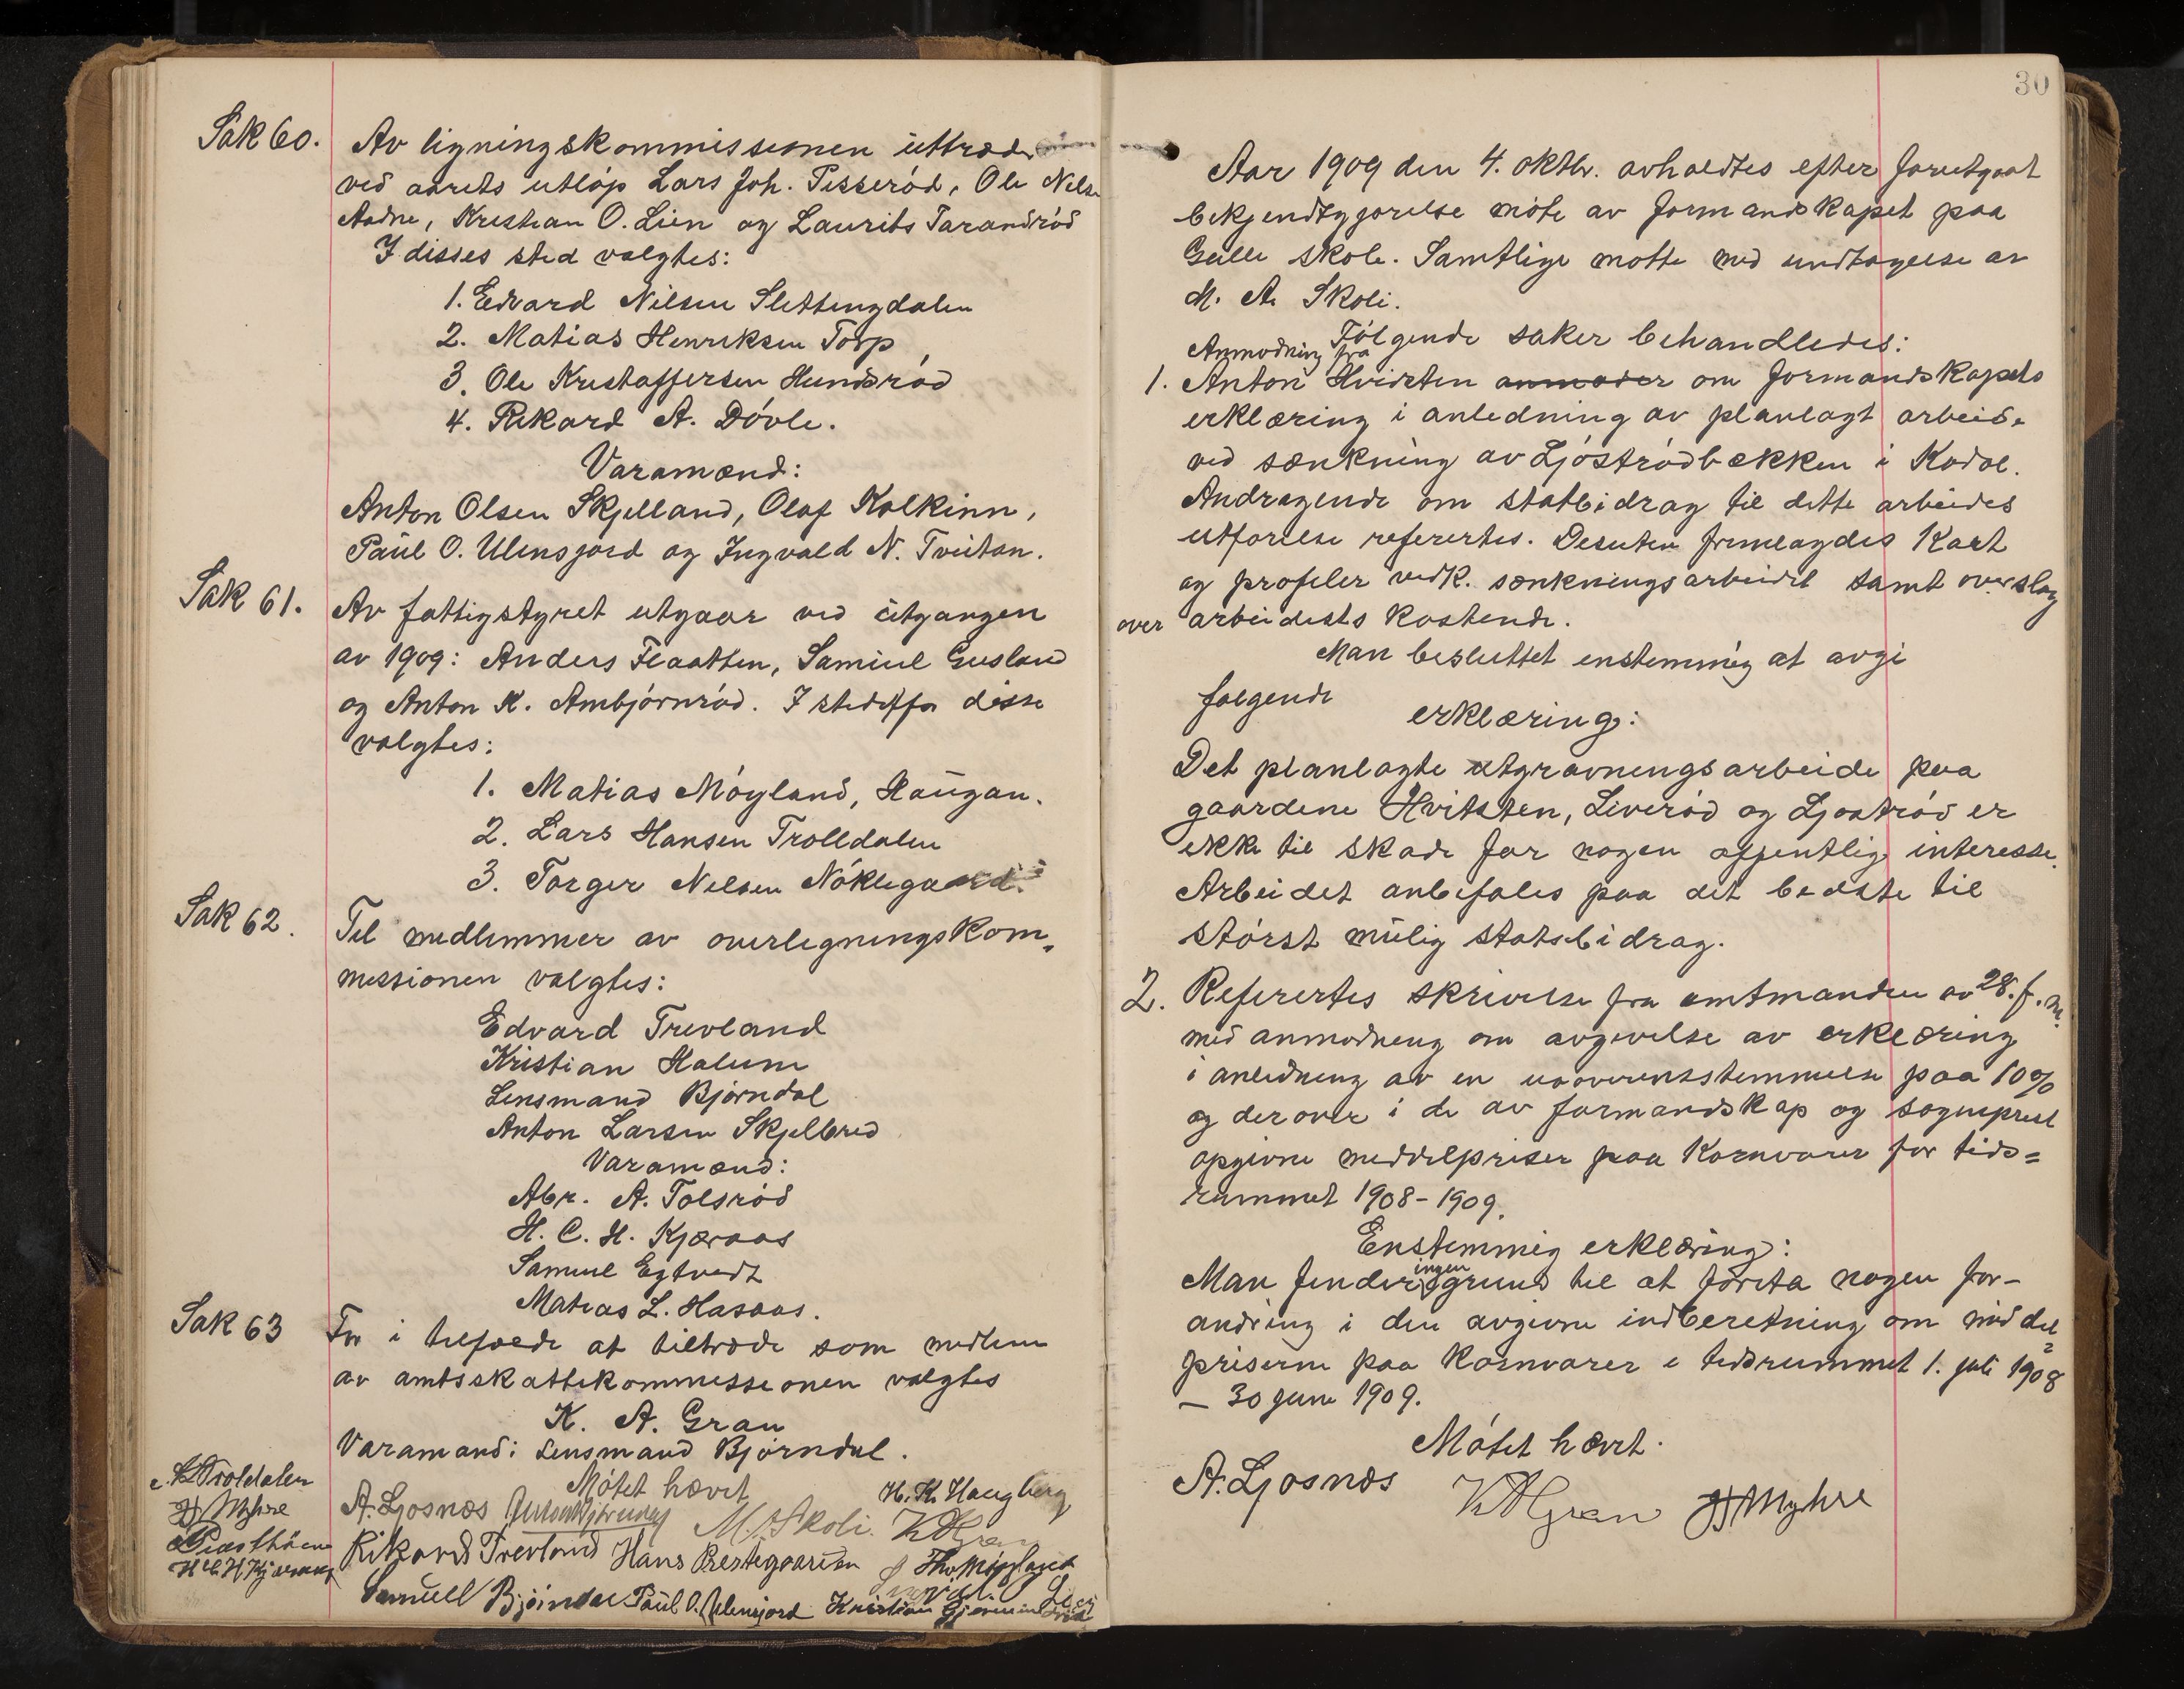 Sak 60. Av ligningskommissionen uttræder
ved aarets utløp Lars Joh. Pisserød, Ole Nilsen
Aadne, Kristian O. Lien og Laurits Tarandrød
I disses sted valgtes:
1. Edvard Nilsen Slettingdalen
2. Matias Henriksen Torp
3. Ole Kristoffersen Hundsrød
4. Rikard A. Døvle.
Varamænd:
Anton Olsen Skjelland, Olaf Kolkinn,
Paul O. Ulensjord og Ingvald N. Tveitan.
Sak 61. Av fattigstyret utgaar ved utgangen
av 1909: Anders Flaatten, Samuel Gusland
og Anton K. Ambjørnrød. I stedet for disse
valgtes:
1. Matias Møyland, Haugan.
2. Lars Hansen Trolldalen
3. Torger Nilsen Nøklegaard.
Sak 62. Til medlemmer av overligningskom-
missionen valgtes:
Edvard Trevland
Kristian Holum
Lensmand Bjørndal
Anton Larsen Skjelbred
Varamænd:
Abr. A. Tolsrød
H. C. H. Kjæraas
Samuel Egtvedt
Matias L. Hasaas.
Sak 63 For i tilfælde at tiltræde som medlem
av amtsskattekommissionen valgtes
K. A. Gran
Varamand: Lensmand Bjørndal.
Møtet hævet
Troldalen
Myhre
H C H Kjæraas
A. Ljosnæs M. A. Skoli. H. K. Haugberg
K A Gran
Rikard Trevland Hans Prestegaarden Th. Møyland
Samuell Bjørndal Paul O. Ulensjord Kristian
30
Aar 1909 den 4. oktbr. avholdtes efter forutgaat
bekjendtgjørelse møte av formandskapet paa
Gulli skole. Samtlige møtte med undtagelse av
M. A. Skoli.
Følgende saker behandledes:
Anmodning fra
1. Anton Hvidsten anmoder om formandskapets
erklæring i anledning av planlagt arbeide
ved sænkning av Ljøstrødbækken i Kodal.
Andragende om statbidrag til dette arbeides
utførelse refertes. Desuten fremlagdes Kart
og profiler vedk. sænkningsarbeidet samt overslag
over arbeidets kostende.
Man besluttet enstemmig at avgi
følgende
erklæring:
Det planlagte utgravningsarbeide paa
gaardene Hvitsten, Liverød og Ljostrød er
ikke til skade for nogen offentlig interesse.
Arbeidet anbefales paa det bedste til
størst mulig statsbidrag.
2. Refertes skrivelse fra amtmanden av 28. f. m.
med anmodning om avgivelse av erklæring
i anledning av en uoverensstemmelse paa 10%
og derover i de av formandskap og sogneprest
opgivne middelpriser paa Kornvarer for tids=
rummet 1908-1909.
Enstemmig erklæring:
Man finder ingen grund til at foreta nogen for-
andring i den avgivne indberetning om middel=
priserne paa Kornvarer i tidsrummet 1. juli 1908
- 30 juni 1909.
Møtet hævet.
A. Ljosnæs K A Gran Myhre